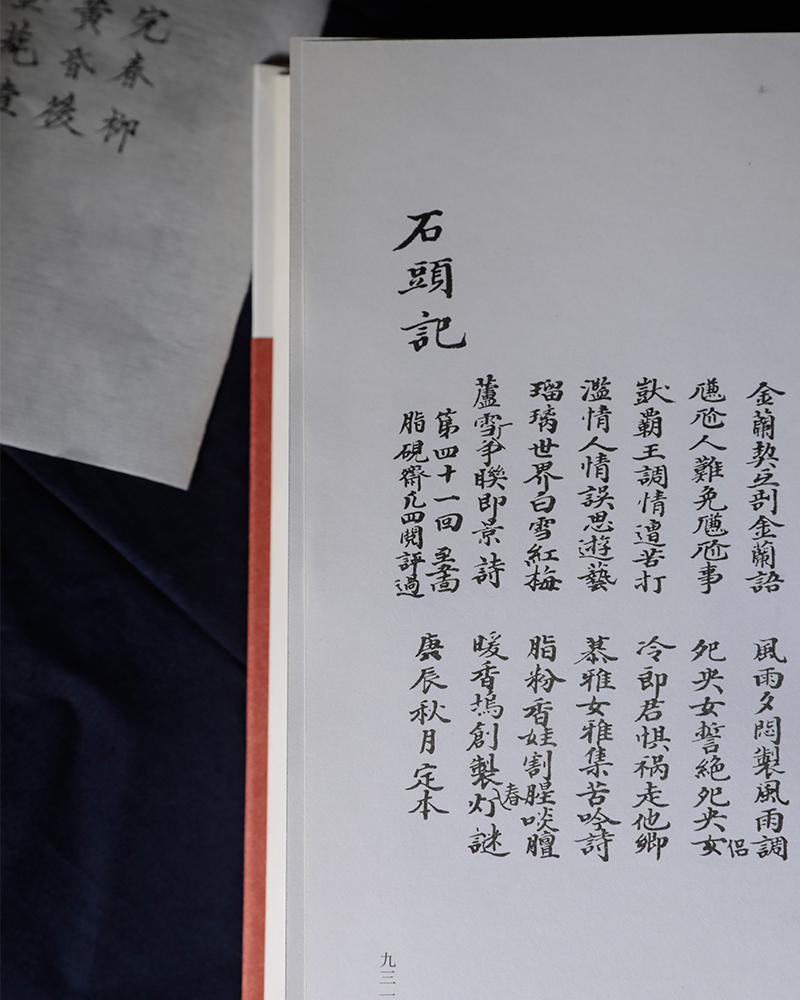 金蘭契互剖金蘭語 風雨夕悶製風雨調
尷尬人難免尷尬事 夗央女誓絕夗央女侣
獃覇王調情遭苦打 冷郎君惧祸走他鄉
濫情人情誤思遊藝 慕雅女雅集苦吟詩
瑠璃世界白雪紅梅 脂粉香娃割腥啖膻
蘆雪广争聮即景詩 暖香塢創製春灯謎
第四十一回至
脂硯齋凡四閱評過
庚辰秋月定本
石頭記
九三一
完春柳
黃昏後